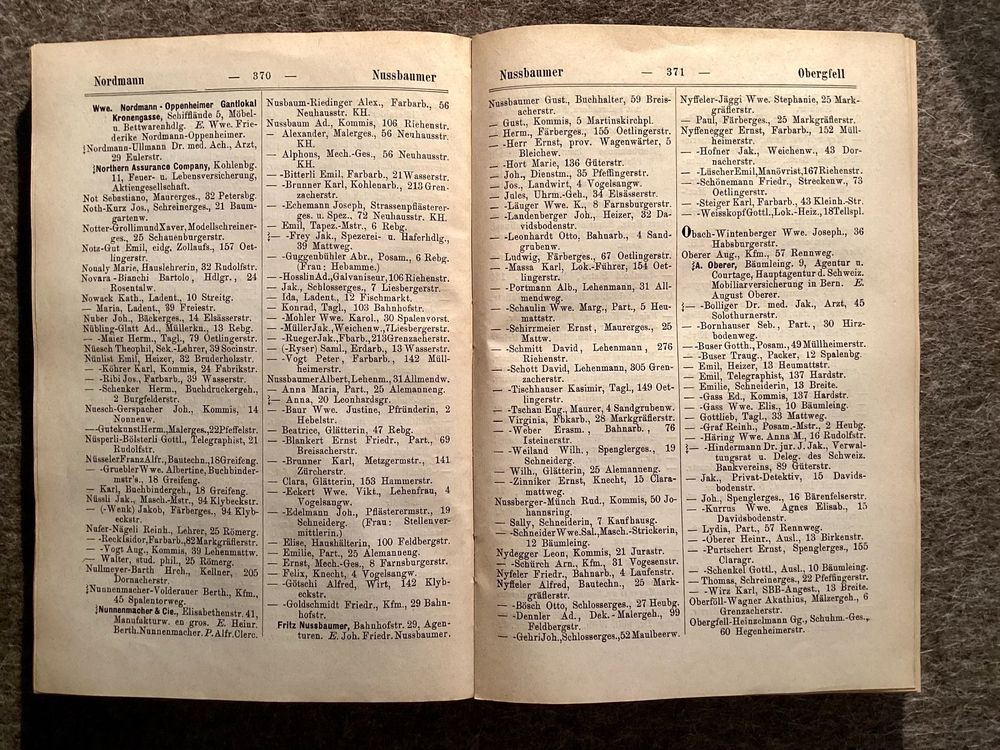 Nordmann — 370 — Nussbaumer
Wwe. Nordmann-Oppenheimer Gantlokal
Kronengasse, Schifflände 5, Möbel-
u. Bettwarenhdlg. E. Wwe. Frie-
derike Nordmann-Oppenheimer.
Nordmann-Ullmann Dr. med. Ach., Arzt,
29 Eulerstr.
Northern Assurance Company, Kohlenbg.
11, Feuer- u. Lebensversicherung,
Aktiengesellschaft.
Not Sebastiano, Maurerges., 32 Petersbg.
Noth-Kurz Jos., Schreinerges., 21 Baum-
gartenw.
Notter-Grollimund Xaver, Modellschreiner-
ges., 25 Schauenburgerstr.
Notz-Gut Emil, eidg. Zollaufs., 157 Oet-
lingerstr.
Noualy Marie, Hauslehrerin, 32 Rudolfstr.
Novara-Bianchi Bartolo, Hdlgr., 24
Rosentalw.
Nowack Kath., Ladent., 10 Streitg.
Maria, Ladent., 39 Freiestr.
Nuber Joh., Bäckerges., 14 Elsässerstr.
Nübling-Glatt Ad., Müllerkn., 13 Rebg.
— -Maier Herm., Tagl., 79 Oetlingerstr.
Nüesch Theophil, Sek.-Lehrer, 39 Socinstr.
Nünlist Emil, Heizer, 32 Bruderholzstr.
— -Köhrer Karl, Kommis, 24 Fabrikstr.
— -Ribi Jos., Farbarb., 39 Wasserstr.
— -Schenker Herm., Buchdruckergeh.,
2 Burgfelderstr.
Nuesch-Gerspacher Joh., Kommis, 14
Nonnenw.
— -Gutekunst Herm., Malerges., 22 Pfeffelstr.
Nüsperli-Bölsterli Gottl., Telegraphist, 21
Rudolfstr.
Nüsseler Franz Alfr., Bautechn., 18 Greifeng.
— -Gruebler Wwe. Albertine, Buchbinder-
mstr's., 18 Greifeng.
— Karl, Buchbindergeh., 18 Greifeng.
Nüssli Jak., Masch.-Mstr., 94 Klybeckstr.
— (-Wenk) Jakob, Färberges., 94 Klyb-
eckstr.
Nufer-Nägeli Reinh., Lehrer, 25 Römerg.
— -Recklsidor, Farbarb., 82 Markgräflerstr.
— -Vogt Aug., Kommis, 39 Lehenmattw.
— Walter, stud. phil., 25 Römerg.
Nullmeyer-Barth Hrch., Kellner, 205
Dornacherstr.
Nunnenmacher-Volderauer Berth., Kfm.,
45 Spalentorweg.
Nunnenmacher & Cie., Elisabethenstr. 41,
Manufakturw. en gros. E. Heinr.
Berth. Nunnenmacher. P. Alfr. Clerc.
Nusbaum-Riedinger Alex., Farbarb., 56
Neuhausstr. KH.
Nussbaum Ad., Kommis, 106 Riehenstr.
— Alexander, Malerges., 56 Neuhausstr.
KH.
— Alphons, Mech.-Ges., 56 Neuhausstr.
KH.
— -Bitterli Emil, Farbarb., 21 Wasserstr.
— -Brunner Karl, Kohlenarb., 213 Gren-
zacherstr.
— -Echemann Joseph, Strassenpflästerer-
ges. u. Spez., 72 Neuhausstr. KH.
— Emil, Tapez.-Mstr., 6 Rebg.
— -Frey Jak., Spezerei- u. Haferhdlg.,
39 Mattweg.
— -Guggenbühler Abr., Posam., 6 Rebg.
(Frau: Hebamme.)
— -Hosslin Ad., Galvaniseur, 106 Riehenstr.
— Jak., Schlosserges., 7 Liesbergerstr.
— Ida, Ladent., 12 Fischmarkt.
— Konrad, Tagl., 103 Bahnhofstr.
— -Mohler Wwe. Karol., 30 Spalenvorst.
— -Müller Jak., Weichenw., 7 Liesbergerstr.
— -Rueger Jak., Fbarb., 213 Grenzacherstr.
— (-Ryser) Saml., Erdarb., 13 Wasserstr.
— -Vogt Peter, Farbarb., 142 Müll-
heimerstr.
Nussbaumer Albert, Lehenm., 31 Allmendw.
— Anna Maria, Part., 25 Alemanneng.
— Anna, 20 Leonhardsgr.
— -Baur Wwe. Justine, Pfründerin, 2
Hebelstr.
— Beatrice, Glätterin, 47 Rebg.
— -Blankert Ernst Friedr., Part., 69
Breisacherstr.
— -Brunner Karl, Metzgermstr., 141
Zürcherstr.
— Clara, Glätterin, 153 Hammerstr.
— -Eckert Wwe. Vikt., Lehenfrau, 4
Vogelsangw.
— -Edelmann Joh., Pflästerermstr., 19
Schneiderg. (Frau: Stellenver-
mittlerin.)
— Elise, Haushälterin, 100 Feldbergstr.
— Emilie, Part., 25 Alemanneng.
— Ernst, Mech.-Ges., 8 Farnsburgerstr.
— Felix, Knecht, 4 Vogelsangw.
— -Göschi Alfred, Wirt, 142 Klyb-
eckstr.
— -Goldschmidt Friedr., Kfm., 29 Bahn-
hofstr.
Fritz Nussbaumer, Bahnhofstr. 29, Agen-
turen. E. Joh. Friedr. Nussbaumer.
Nussbaumer — 371 — Obergfell
Nussbaumer Gust., Buchhalter, 59 Breis-
acherstr.
— Gust., Kommis, 5 Martinskirchpl.
— Herm., Färberges., 155 Oetlingerstr.
— -Herr Ernst, prov. Wagenwärter, 5
Bleichew.
— -Hort Marie, 136 Güterstr.
— Joh., Dienstm., 35 Pfeffingerstr.
— Jos., Landwirt, 4 Vogelsangw.
— Jules, Uhrm.-Geh., 34 Elsässerstr.
— -Läuger Wwe. K., 8 Farnsburgerstr.
— -Landenberger Joh., Heizer, 32 Da-
vidsbodenstr.
— -Leonhardt Otto, Bahnarb., 4 Sand-
grubenw.
— Ludwig, Färberges., 67 Oetlingerstr.
— -Massa Karl, Lok.-Führer, 154 Oet-
lingerstr.
— -Portmann Alb., Lehenmann, 31 All-
mendweg.
— -Schaulin Wwe. Marg., Part., 5 Heu-
mattstr.
— -Schirrmeier Ernst, Maurerges., 25
Mattw.
— -Schmitt David, Lehenmann, 276
Riehenstr.
— -Schott David, Lehenmann, 305 Gren-
zacherstr.
— -Tischhauser Kasimir, Tagl., 149 Oet-
lingerstr.
— -Tschan Eug., Maurer, 4 Sandgrubenw.
— Virginia, Fbkarb., 28 Markgräflerstr.
— -Weber Erasm., Bahnarb., 76
Isteinerstr.
— -Weiland Wilh., Spenglerges., 19
Schneiderg.
— Wilh., Glätterin, 25 Alemanneng.
— -Zinniker Ernst, Knecht, 15 Clara-
mattweg.
Nussberger-Münch Rud., Kommis, 50 Jo-
hannsring.
— Sally, Schneiderin, 7 Kaufhausg.
— -Schneider Wwe. Sal., Masch.-Strickerin,
12 Bäumleing.
Nydegger Leon, Kommis, 21 Jurastr.
— -Schürch Arn., Kfm., 31 Vogesenstr.
Nyfeler Friedr., Bahnarb., 4 Laufenstr.
Nyffeler Alfred, Bautechn., 25 Mark-
gräflerstr.
— -Bösch Otto, Schlosserges., 27 Heubg.
— -Dennler Ad., Dek.-Malergeh., 99
Feldbergstr.
— -Gehri Joh., Schlosserges., 52 Maulbeerw.
Nyffeler-Jäggi Wwe. Stephanie, 25 Mark-
gräflerstr.
— Paul, Färberges., 25 Markgräflerstr.
Nyffenegger Ernst, Farbarb., 152 Müll-
heimerstr.
— -Hofner Jak., Weichenw., 43 Dor-
nacherstr.
— -Lüscher Emil, Manövrist, 167 Riehenstr.
— -Schönemann Friedr., Streckenw., 73
Oetlingerstr.
— -Steiger Karl, Farbarb., 43 Kleinh.-Str.
— -Weisskopf Gottl., Lok.-Heiz., 18 Tellspl.
Obach-Wintenberger Wwe. Joseph., 36
Habsburgerstr.
Oberer Aug., Kfm., 57 Rennweg.
A. Oberer, Bäumleing. 9, Agentur u.
Courtage, Hauptagentur d. Schweiz.
Mobiliarversicherung in Bern. E.
August Oberer.
— -Bolliger Dr. med. Jak., Arzt, 45
Solothurnerstr.
— -Bornhauser Seb., Part., 30 Hirz-
bodenweg.
— -Buser Gotth., Posam., 49 Müllheimerstr.
— -Buser Traug., Packer, 12 Spalenbg.
— Emil, Heizer, 13 Heumattstr.
— Emil, Telegraphist, 137 Hardstr.
— Emilie, Schneiderin, 13 Breite.
— -Gass Ed., Kommis, 137 Hardstr.
— -Gass Wwe. Elis., 10 Bäumleing.
— Gottlieb, Tagl., 33 Mattweg.
— -Graf Reinh., Posam.-Mstr., 2 Heubg.
— -Häring Wwe. Anna M., 16 Rudolfstr.
— -Hindermann Dr. jur. J. Jak., Verwal-
tungsrat u. Deleg. des Schweiz.
Bankvereins, 89 Güterstr.
— Jak., Privat-Detektiv, 15 Davids-
bodenstr.
— Joh., Spenglerges., 16 Bärenfelserstr.
— -Kurrus Wwe. Agnes Elisab., 15
Davidsbodenstr.
— Lydia, Part., 57 Rennweg.
— -Oberer Heinr., Ausl., 13 Birkenstr.
— -Purtschert Ernst, Spenglerges., 155
Claragr.
— -Schenkel Gottl., Ausl., 10 Bäumleing.
— Thomas, Schreinerges., 22 Pfeffingerstr.
— -Wirz Karl, SBB-Angest., 13 Breite.
Oberföll-Wagner Akathius, Mälzergeh., 6
Grenzacherstr.
Obergfell-Heinzelmann Gg., Schuhm.-Ges.,
60 Hegenheimerstr.